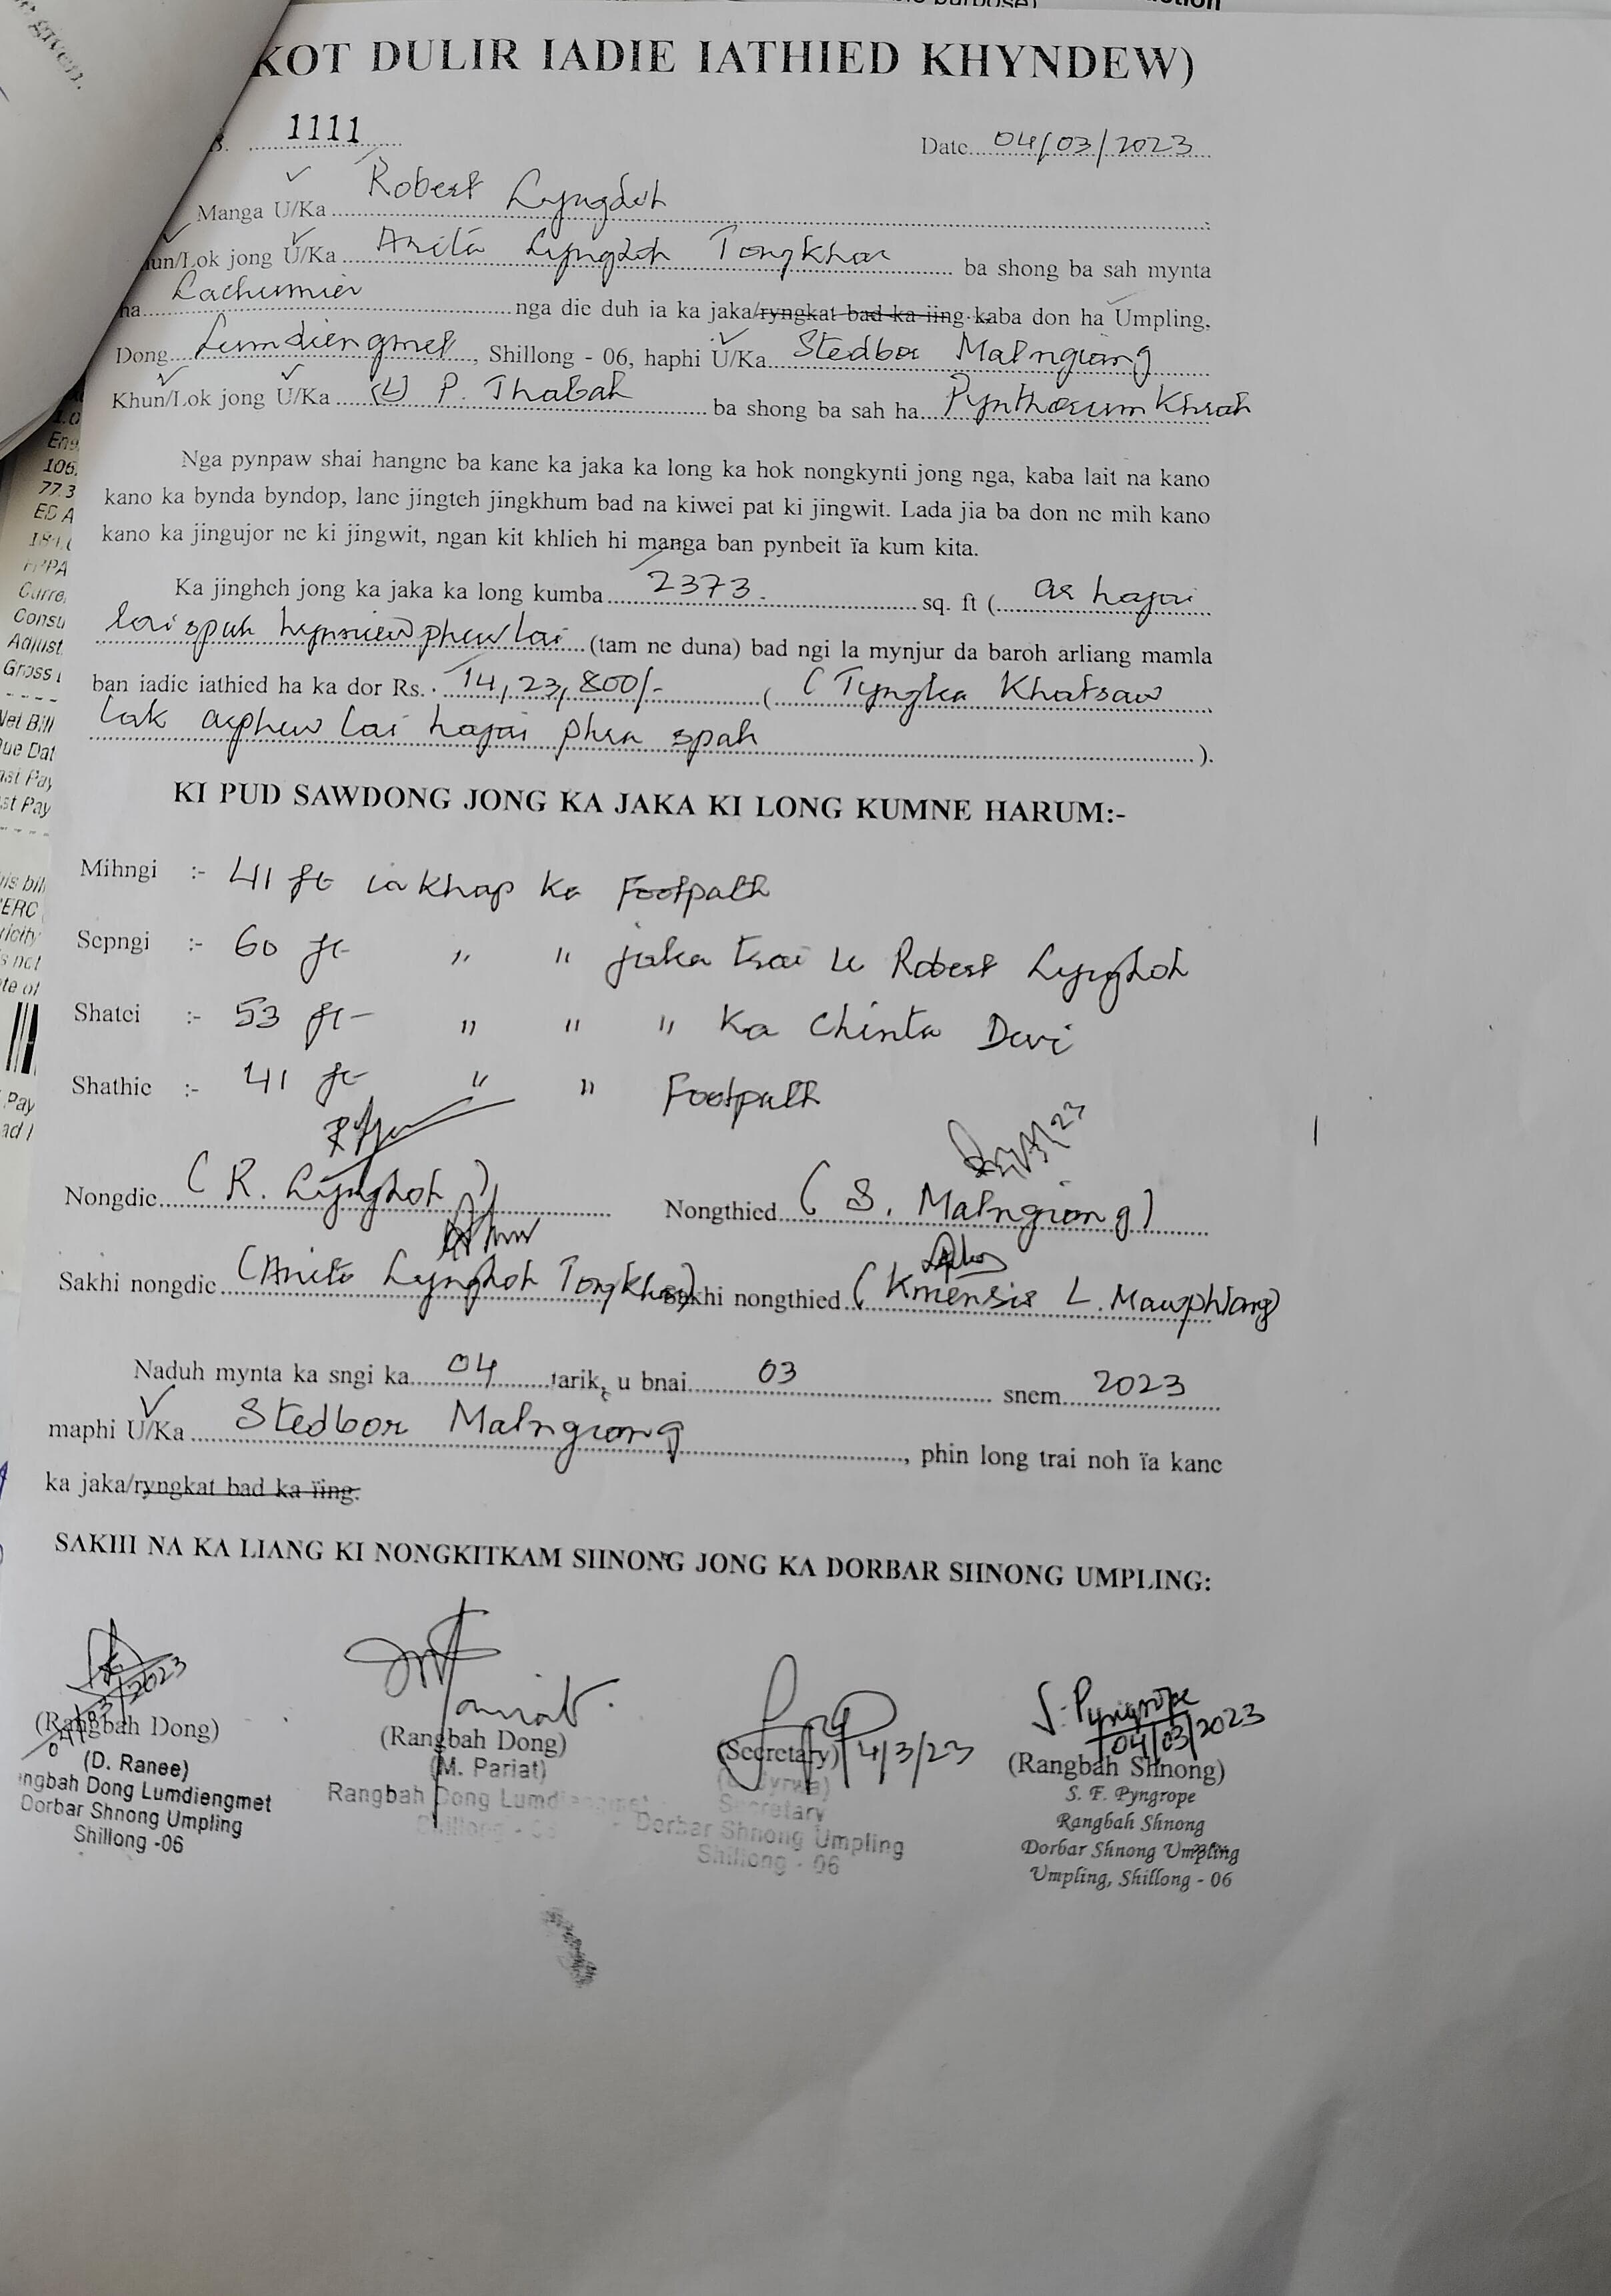 KOT DULIR IADIE IATHIED KHYNDEW)
1111
Date 04/03/2023
Manga U/Ka Robert Lyngdoh
Lok jong U/Ka Anita Lyngdoh Tongkhar ba shong ba sah mynta
ha Lachumier nga die duh ia ka jaka/ryngkat bad ka iing kaba don ha Umpling,
Dong Lumdiengmet, Shillong - 06, haphi U/Ka Stedbor Malngiang
Khun/Lok jong U/Ka (L) P. Thabah ba shong ba sah ha Pynthorumkhrah
Nga pynpaw shai hangne ba kane ka jaka ka long ka hok nongkynti jong nga, kaba lait na kano
kano ka bynda byndop, lane jingteh jingkhum bad na kiwei pat ki jingwit. Lada jia ba don ne mih kano
kano ka jingujor ne ki jingwit, ngan kit khlieh hi manga ban pynbeit ïa kum kita.
Ka jingheh jong ka jaka ka long kumba 2373 sq. ft ( ar hajar
lai spah hynniew phew lai (tam ne duna) bad ngi la mynjur da baroh arliang mamla
ban iadie iathied ha ka dor Rs. 14,23,800/- ( ( Tyngka Khatsaw
lak arphew lai hajar phra spah ).
KI PUD SAWDONG JONG KA JAKA KI LONG KUMNE HARUM:-
Mihngi :- 41 ft ia khap ka Footpath
Sepngi :- 60 ft " " jaka trai u Robert Lyngdoh
Shatei :- 53 ft " " " Ka Chinta Devi
Shathie :- 41 ft " " Footpath
Nongdie ( R. Lyngdoh ) Nongthied ( S. Malngiang )
Sakhi nongdie (Anita Lyngdoh Tongkhar) Sakhi nongthied ( Kmensis L. Mawphlang)
Naduh mynta ka sngi ka 04 tarik, u bnai 03 snem 2023
maphi U/Ka Stedbor Malngiang, phin long trai noh ïa kane
ka jaka/ryngkat bad ka ïing.
SAKHI NA KA LIANG KI NONGKITKAM SHNONG JONG KA DORBAR SHNONG UMPLING:
04/03/2023
(Rangbah Dong)
(D. Ranee)
ngbah Dong Lumdiengmet
Dorbar Shnong Umpling
Shillong -06
(Rangbah Dong)
(M. Pariat)
Rangbah Dong Lumdiengmet
Shillong - 06
(Secretary) 4/3/23
Secretary
Dorbar Shnong Umpling
Shillong - 06
S. Pyngrope
04/03/2023
(Rangbah Shnong)
S. F. Pyngrope
Rangbah Shnong
Dorbar Shnong Umpling
Umpling, Shillong - 06